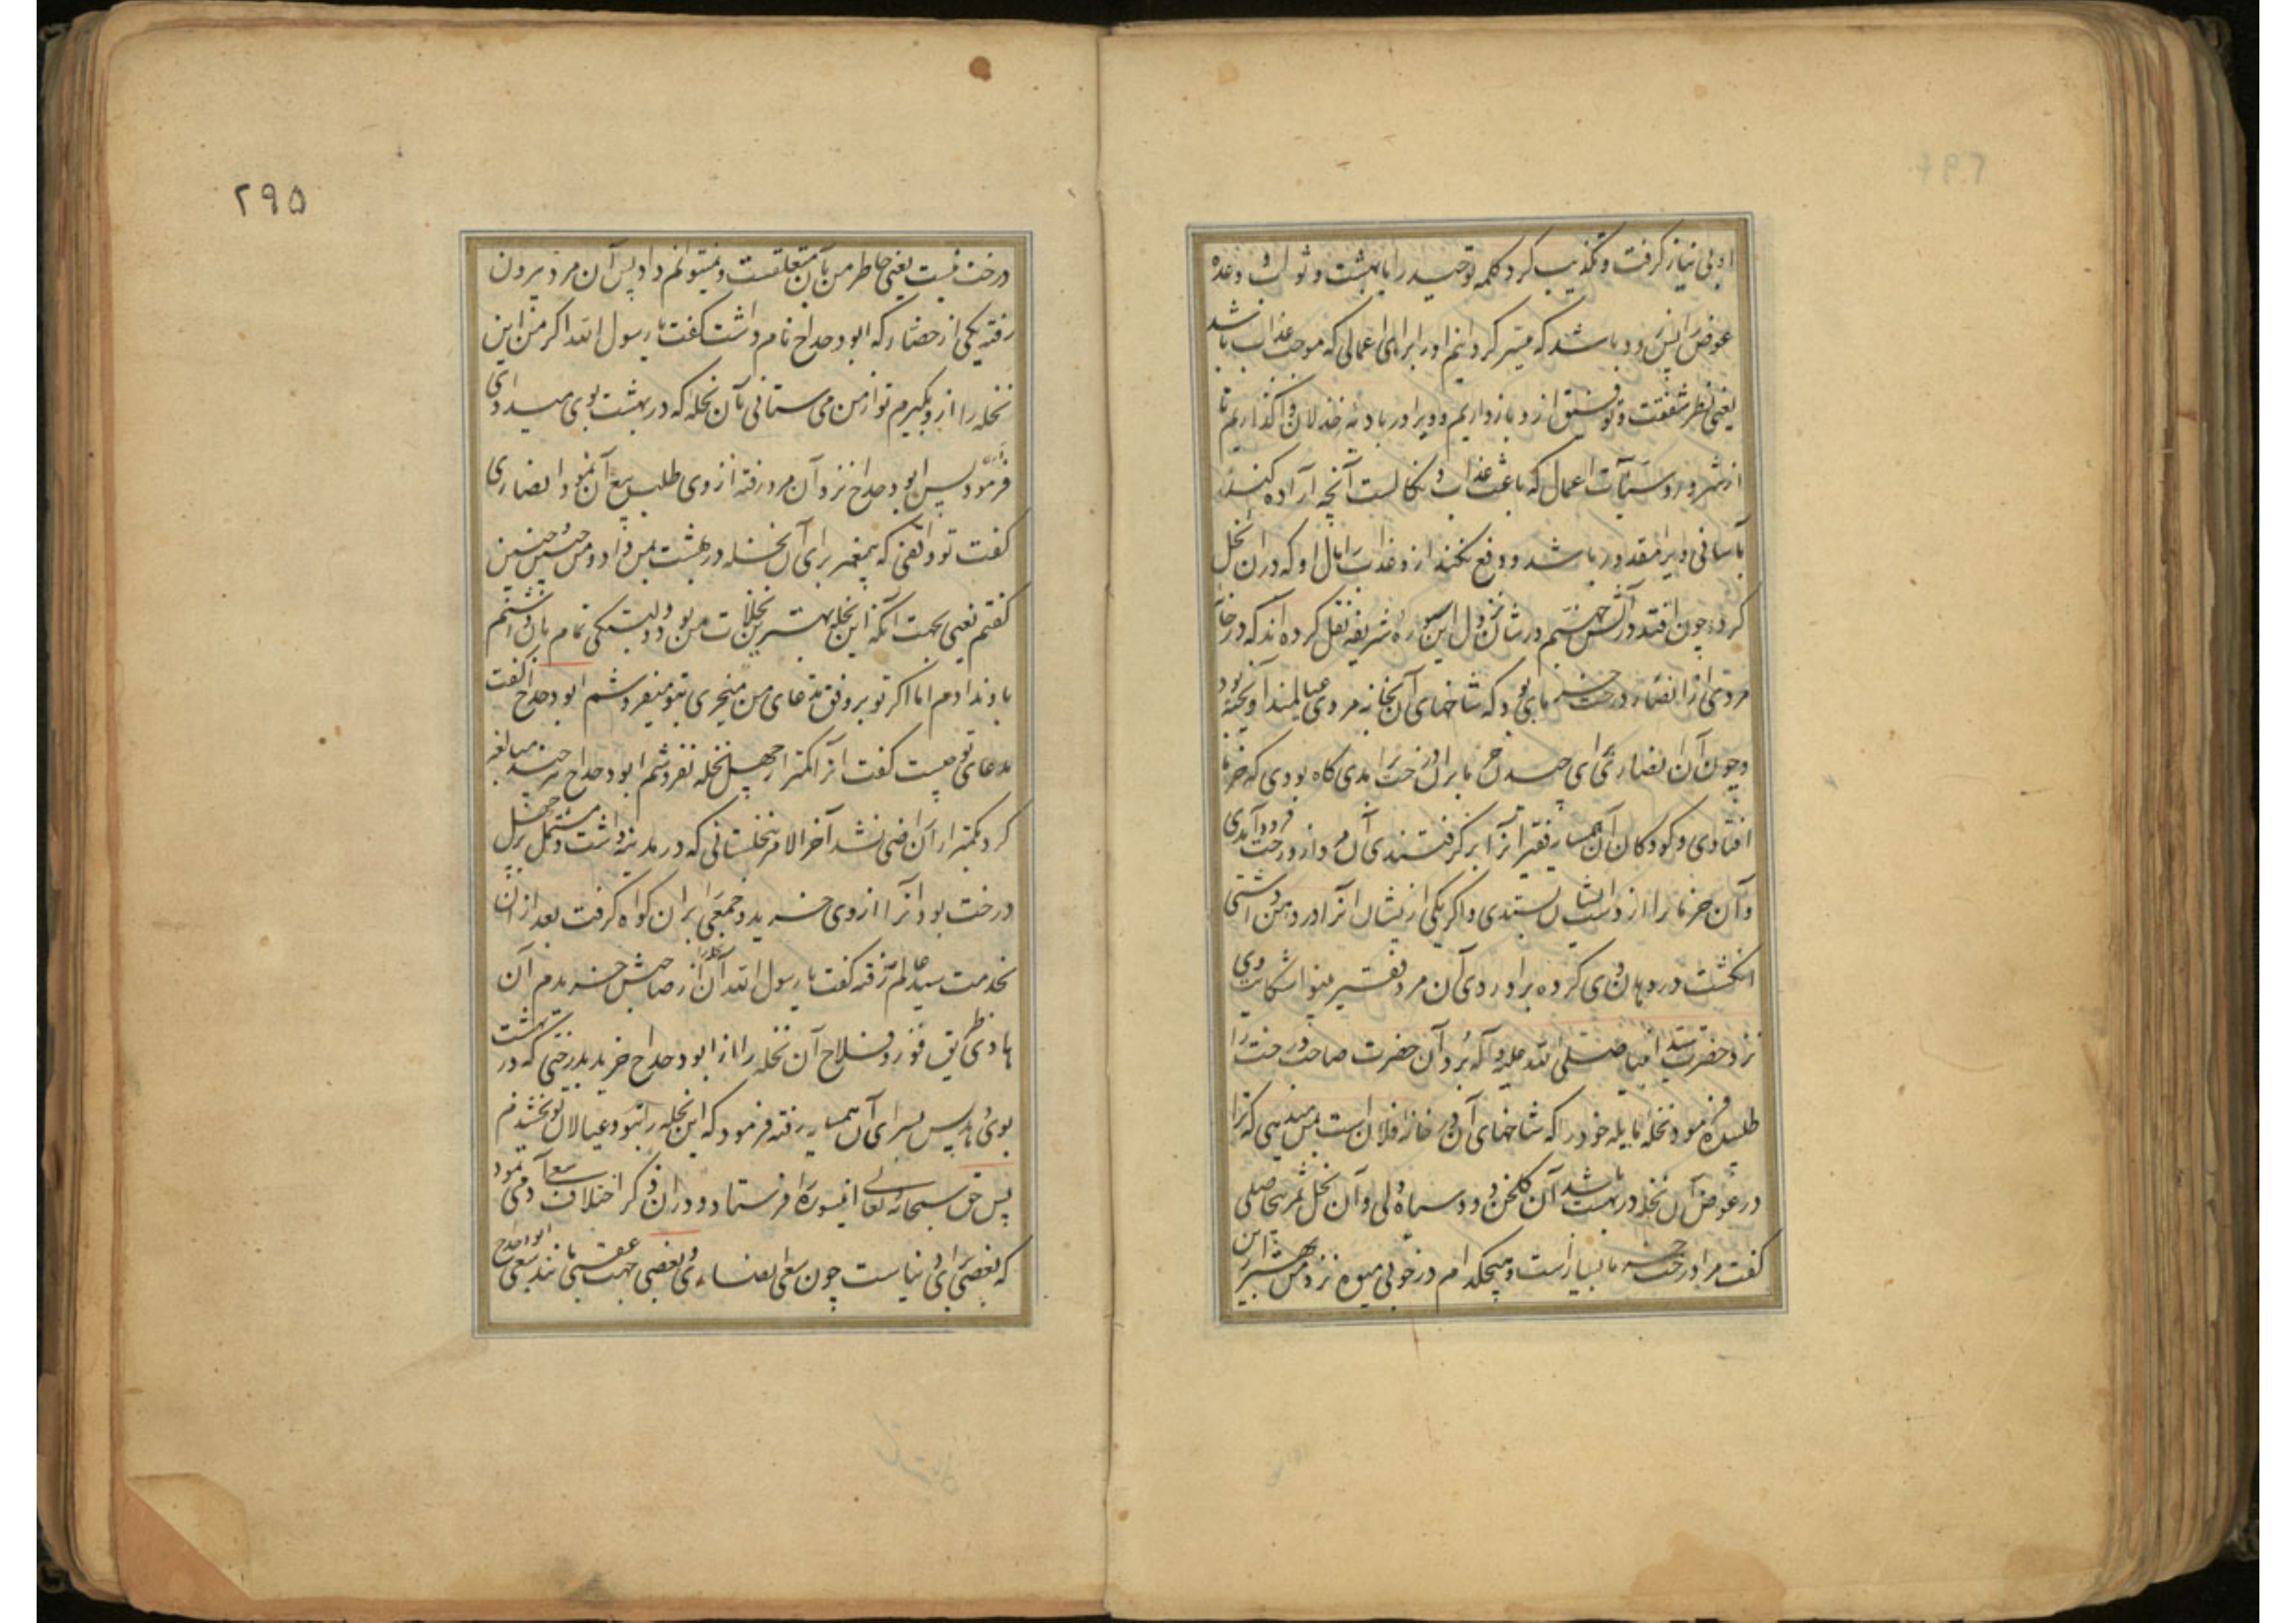 او بی نیاز گرفت و تکذیب کرد کلمه توحید را یا بهشت و ثواب و وعده
عوض پس زود باشد که میسر گردانیم او را برای اعمالی که موجب عذاب باشد
یعنی نظر شفقت و توفیق از و باز داریم و ویرا در بادیه خذلان وا گذاریم تا
از شرور و سیئات اعمال که باعث عذاب و نکالست آنچه اراده کند
بآسانی ویرا مقدور باشد و دفع نکند ازو عذاب را مال او که در آن بخل
کرده چون افتد در آتش جهنم در شان نزول این سوره شریفه نقل کرده اند که در خانه
مردی از انصار درخت خرمایی بود که شاخهای آن بخانه مردی عیالمند آویخته بود
و چون آن انصاری برای چیدن خرما بران درخت برآمدی گاه بودی که خرما
افتادی و کودکان آن همسایه فقیر آنرا بر گرفتندی آن مرد از درخت فرود آمدی
و آن خرما را از دست ایشان بستدی و اگر یکی ازیشان آنرا در دهن داشتی
انگشت در دهان وی کرده برآوردی آن مرد فقیر بینوا شکایت وی
نزد حضرت سید انبیا صلی الله علیه و آله برد آن حضرت صاحب درخت را
طلبیده فرمود نخله مایله خود را که شاخهای آن در خانه فلان است بمن میدهی که ترا
در عوض آن نخله در بهشت باشد آن گلخن و دود سیاه دلی و آن نخل ثمر بیحاصلی
گفت مرا درخت خرما بسیار است و هیچکدام در خوبی میوه نزد من بهتر از این
۲۹۵
درخت نیست یعنی خاطر من بآن متعلقست و نمیتوانم داد پس آن مرد بیرون
رفته یکی از حضار که ابو دحداح نام داشت گفت یا رسول الله اگر من این
نخله را ازو بگیرم تو از من می ستانی بآن نخله که در بهشت بوی میدادی
فرمود آری پس ابو دحداح نزد آن مرد رفته از وی طلب بیع آن نمود انصاری
گفت تو واقفی که پیغمبر برای آن نخله در بهشت بمن داد و من چنین چنین
گفتم یعنی بجهت آنکه این نخله بهترین نخلات من بود و دلبستگی تمام بآن داشتم
باو ندادم اما اگر تو بر وفق مدعای من میخری بتو میفروشم ابو دحداح گفت
مدعای تو چیست گفت آنرا کمتر از چهل نخله نفروشم ابو دحداح هر چند مبالغه
کرد بکمتر از آن راضی نشد آخر الامر نخلستانی که در مدینه داشت و مشتمل بر چهل
درخت بود آنرا از وی خرید و جمعی را بران گواه گرفت بعد از آن
بخدمت سید عالم رفته گفت یا رسول الله آن نخله را از صاحبش خریدم آن
هادی طریق فوز و فلاح آن نخله را از ابو دحداح خرید بدرختی که در بهشت
بوی دهد پس بسرای آن همسایه رفته فرمود که این نخله را بتو و عیالان تو بخشیدم
پس حق سبحانه و تعالی این سوره را فرستاد و در آن ذکر اختلاف سعی آدمی نمود
که بعضی برای دنیاست چون سعی انصاری و بعضی جهت عقبی مانند سعی ابو دحداح